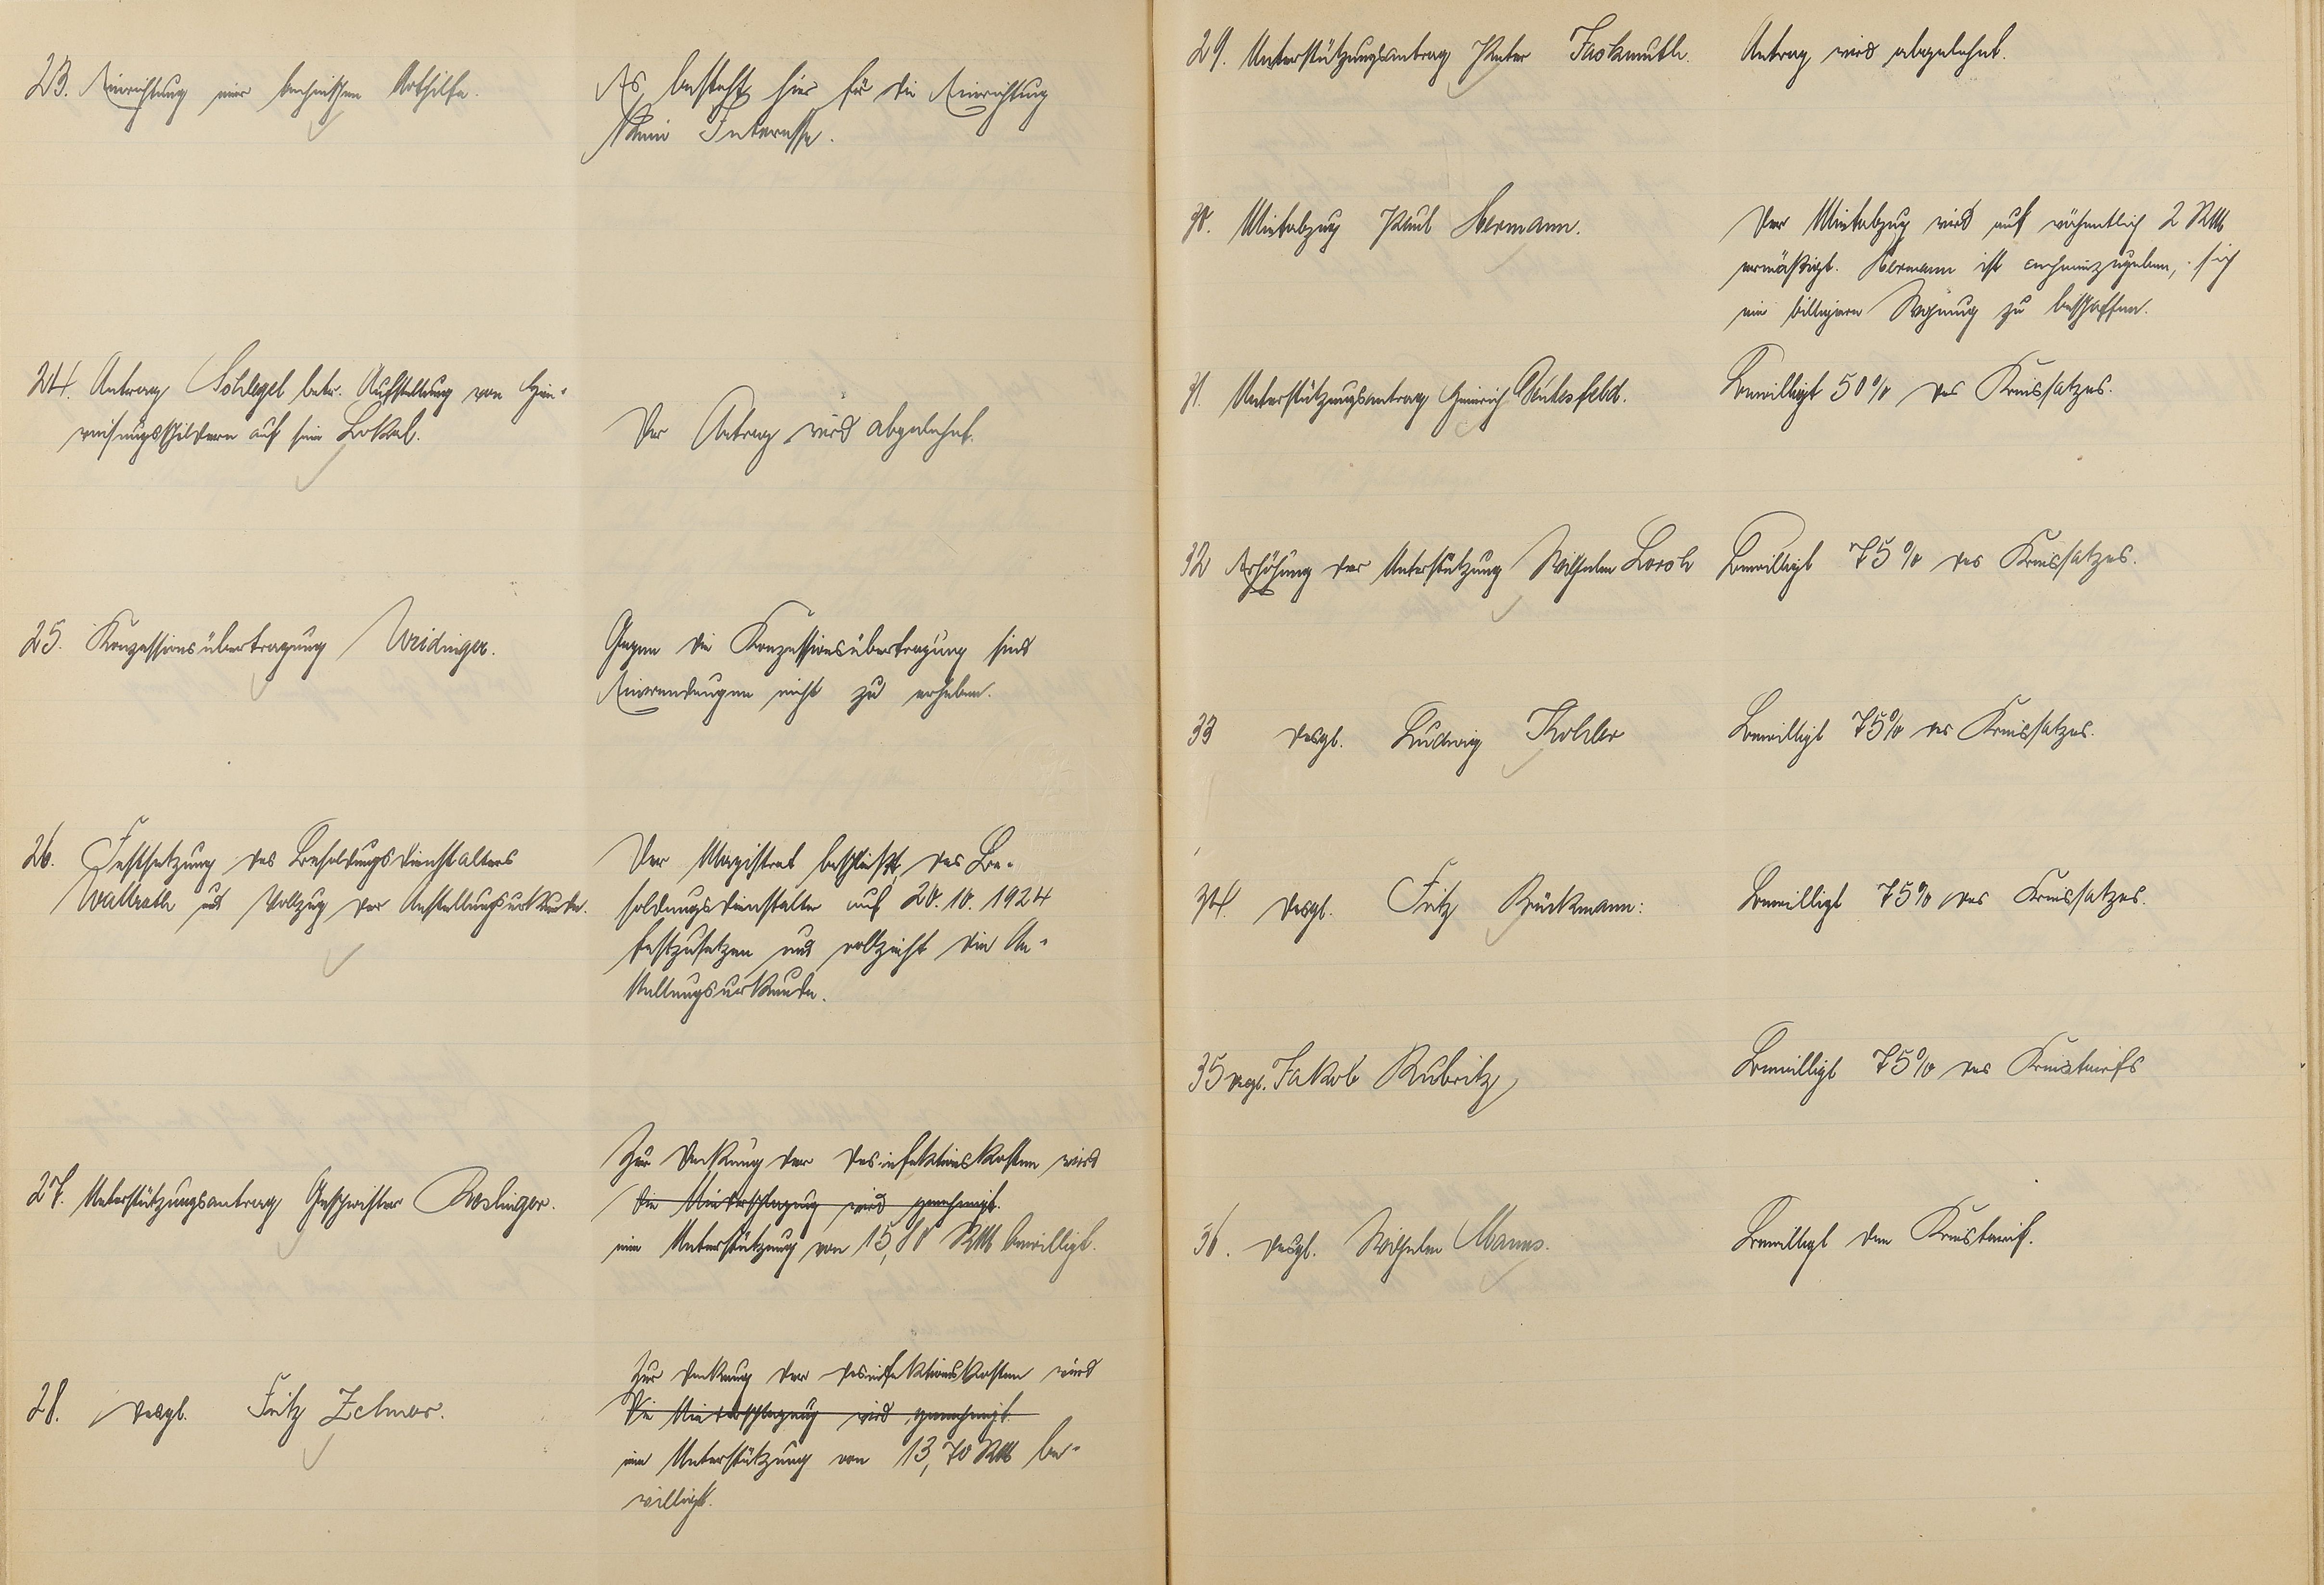 23. Einrichtung einer technischen Nothilfe.
Es besteht hier für die Einrichtung
kein Interesse.
24. Antrag Schlegel betr. Aufstellung von Hin-
weisungsschildern auf sein Lokal.
Der Antrag wird abgelehnt.
25. Konzessionsübertragung Weidinger.
Gegen die Konzessionsübertragung sind
Einwendungen nicht zu erheben.
26. Festsetzung des Besoldungsdienstalters
Wallrath und Vollzug der Anstellungsurkunde.
Der Magistrat beschließt, das Be-
soldungsdienstalter auf 20.10.1924
festzusetzen und vollzieht die An-
stellungsurkunde.
27. Unterstützungsantrag Geschwister Reslinger.
Zur Deckung der Desinfektionskosten wird
Die Niederschlagung wird genehmigt.
eine Unterstützung von 15,80 RM bewilligt.
28. desgl. Fritz Zelmer.
Zur Deckung der Desinfektionskosten wird
Die Niederschlagung wird genehmigt.
eine Unterstützung von 13,70 RM be-
willigt.
29. Unterstützungsantrag Peter Faskmuth.
Antrag wird abgelehnt.
30. Mietabzug Paul Hermann.
Der Mietabzug wird auf wöchentlich 2 RM
ermäßigt. Hermann ist anheimzugeben, sich
eine billigere Wohnung zu beschaffen.
31. Unterstützungsantrag Heinrich
Bewilligt 50% des Kreissatzes.
32 Erhöhung der Unterstützung Wilhelm Lorch
Bewilligt 75% des Kreissatzes.
33 desgl. Ludwig Kohler
Bewilligt 75% des Kreissatzes.
34. desgl. Fritz Brückmann:
Bewilligt 75% des Kreissatzes.
35 desgl. Jakob Rubritz
Bewilligt 75% des Kreistarifs
36. desgl. Wilhelm Manns.
Bewilligt den Kreistarif.